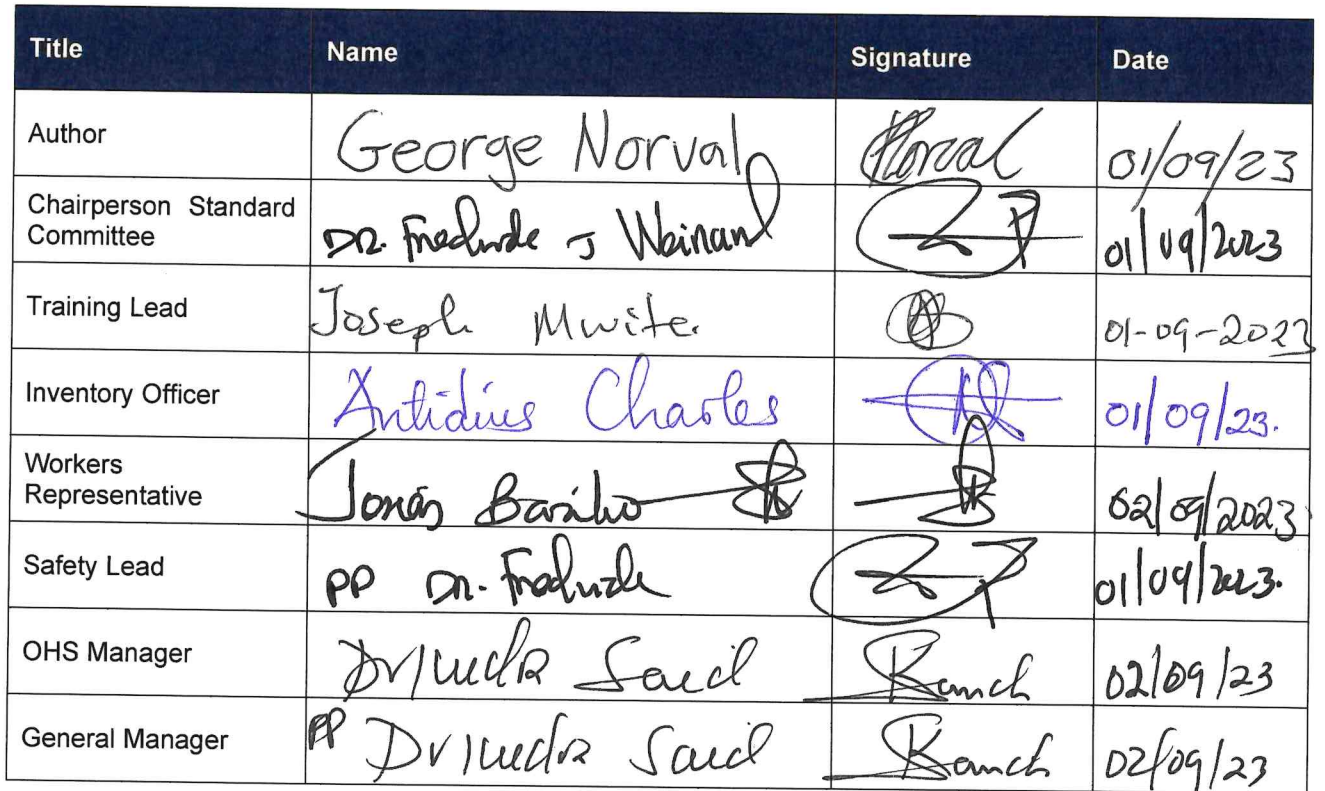 Title Name Signature Date
Author George Norval Norval 01/09/23
Chairperson Standard
Committee Dr. J Weinand 01/09/2023
Training Lead Joseph Mwite. 01-09-2023
Inventory Officer Antidius Charles 01/09/23.
Workers
Representative Jonas 02/09/2023
Safety Lead PP Dr. 01/09/2023.
OHS Manager Said 02/09/23
General Manager PP Said 02/09/23